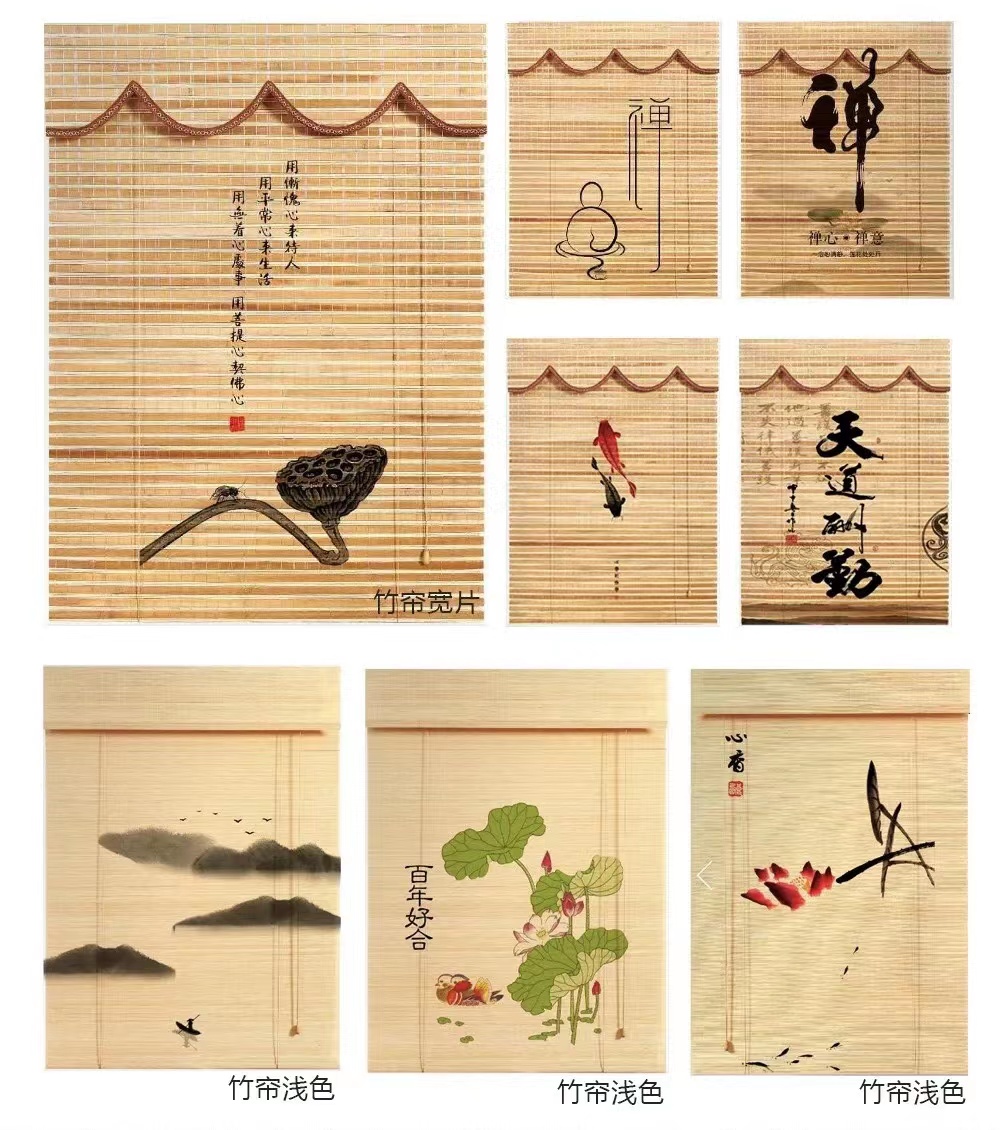 用慚愧心来待人
用平常心来生活
用無着心處事
用菩提心契佛心
竹帘宽片
禅
禅
禅心
禅意
天道酬勤
竹帘浅色
百年好合
竹帘浅色
心香
竹帘浅色